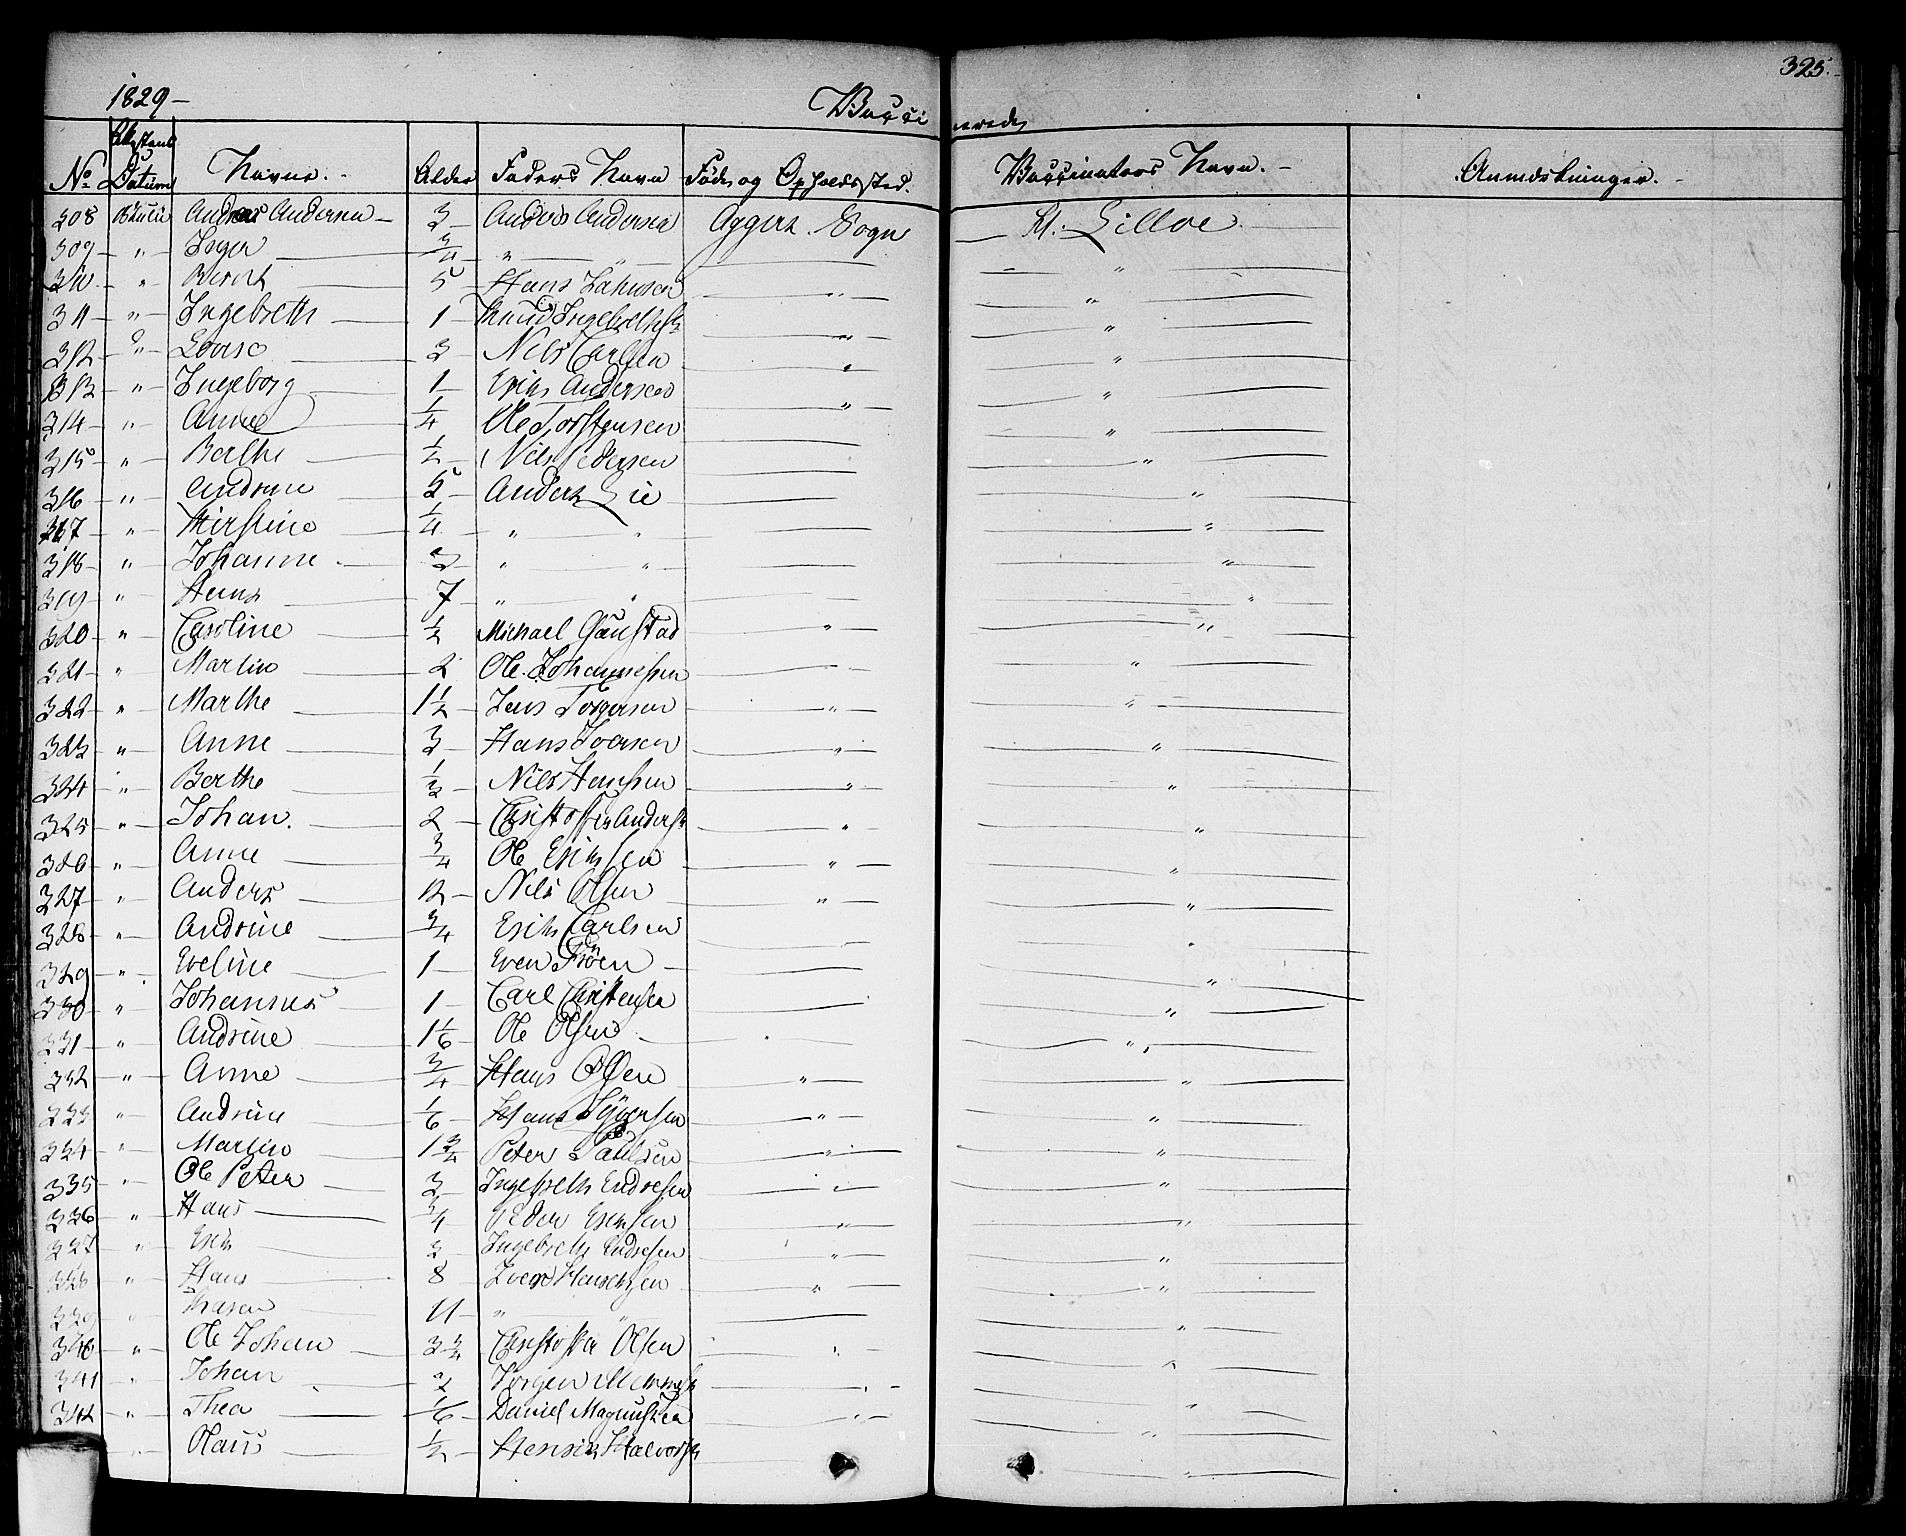 325.
1829 –
Vacci nerede
No Attestens Datum Navne. Alder Faders Navn Føde og Opholdssted. Vaccinators Navn. – Anmærkninger. –
308 Andreas Andersen – 3 – Anders Andersen Aggers Sogn Kl. Lilloe
309 " Inger 3/4 "
310 " Berith 5 Hans "
311 " Ingebreth 1 Knud Ingebrethsn " "
312 " Lovise 3 Nils Carlsen " "
313 " Ingeborg 1 Erik Andersen " "
314 " Anne 1/4 Ole Torstensen " "
315 " Berthe 1/2 Nils Pedersen "
316 " Andrine 5 Anders Lie "
317 " Kirstine 1/4 " " "
318 " Johanne 3 " " "
319 " Hans 7 " " "
320 " Caroline 1/2 Michael Gaustad " "
321 " Martin 2 Ole Johannessen "
322 " Marthe 1 1/2 Jens Torgersen " "
323 " Anne 3 Hans Iversen " "
324 " Berthe 1/2 Nils Hanssen " "
325 " Johan. 2 Christoffer Anders " "
326 " Anne 3/4 Ole Eriksen " "
327 " Anders 12 Nils Olsen " "
328 " Andrine 3/4 Erik Carlsen "
329 " Eveline 1 Even Frøen "
330 " Johannes 1 Carl Christensen "
331 " Andrine 1 1/6 Ole Olsen "
332 " Anne 3/4 Hans Olsen " "
333 " Andrine 1/6 Hans Syversen " "
334 " Martin 1 3/4 Peter Paulsen " "
335 " Ole Peter 3 Ingebreth Endresen " "
336 " Hans 3/4 Peder Eriksen " "
337 " Erik 3 Ingebreth Endresen " "
338 " Hans 8 Iver " "
339 " Karen 11 " " "
340 " Ole Johan 3 3/4 Christoffer Olsen " "
341 " Johan 2 Jørgen " "
342 " Thea 1/6 Daniel Magnussen " "
" Olaus 1/2 Henrik Halvorsn "